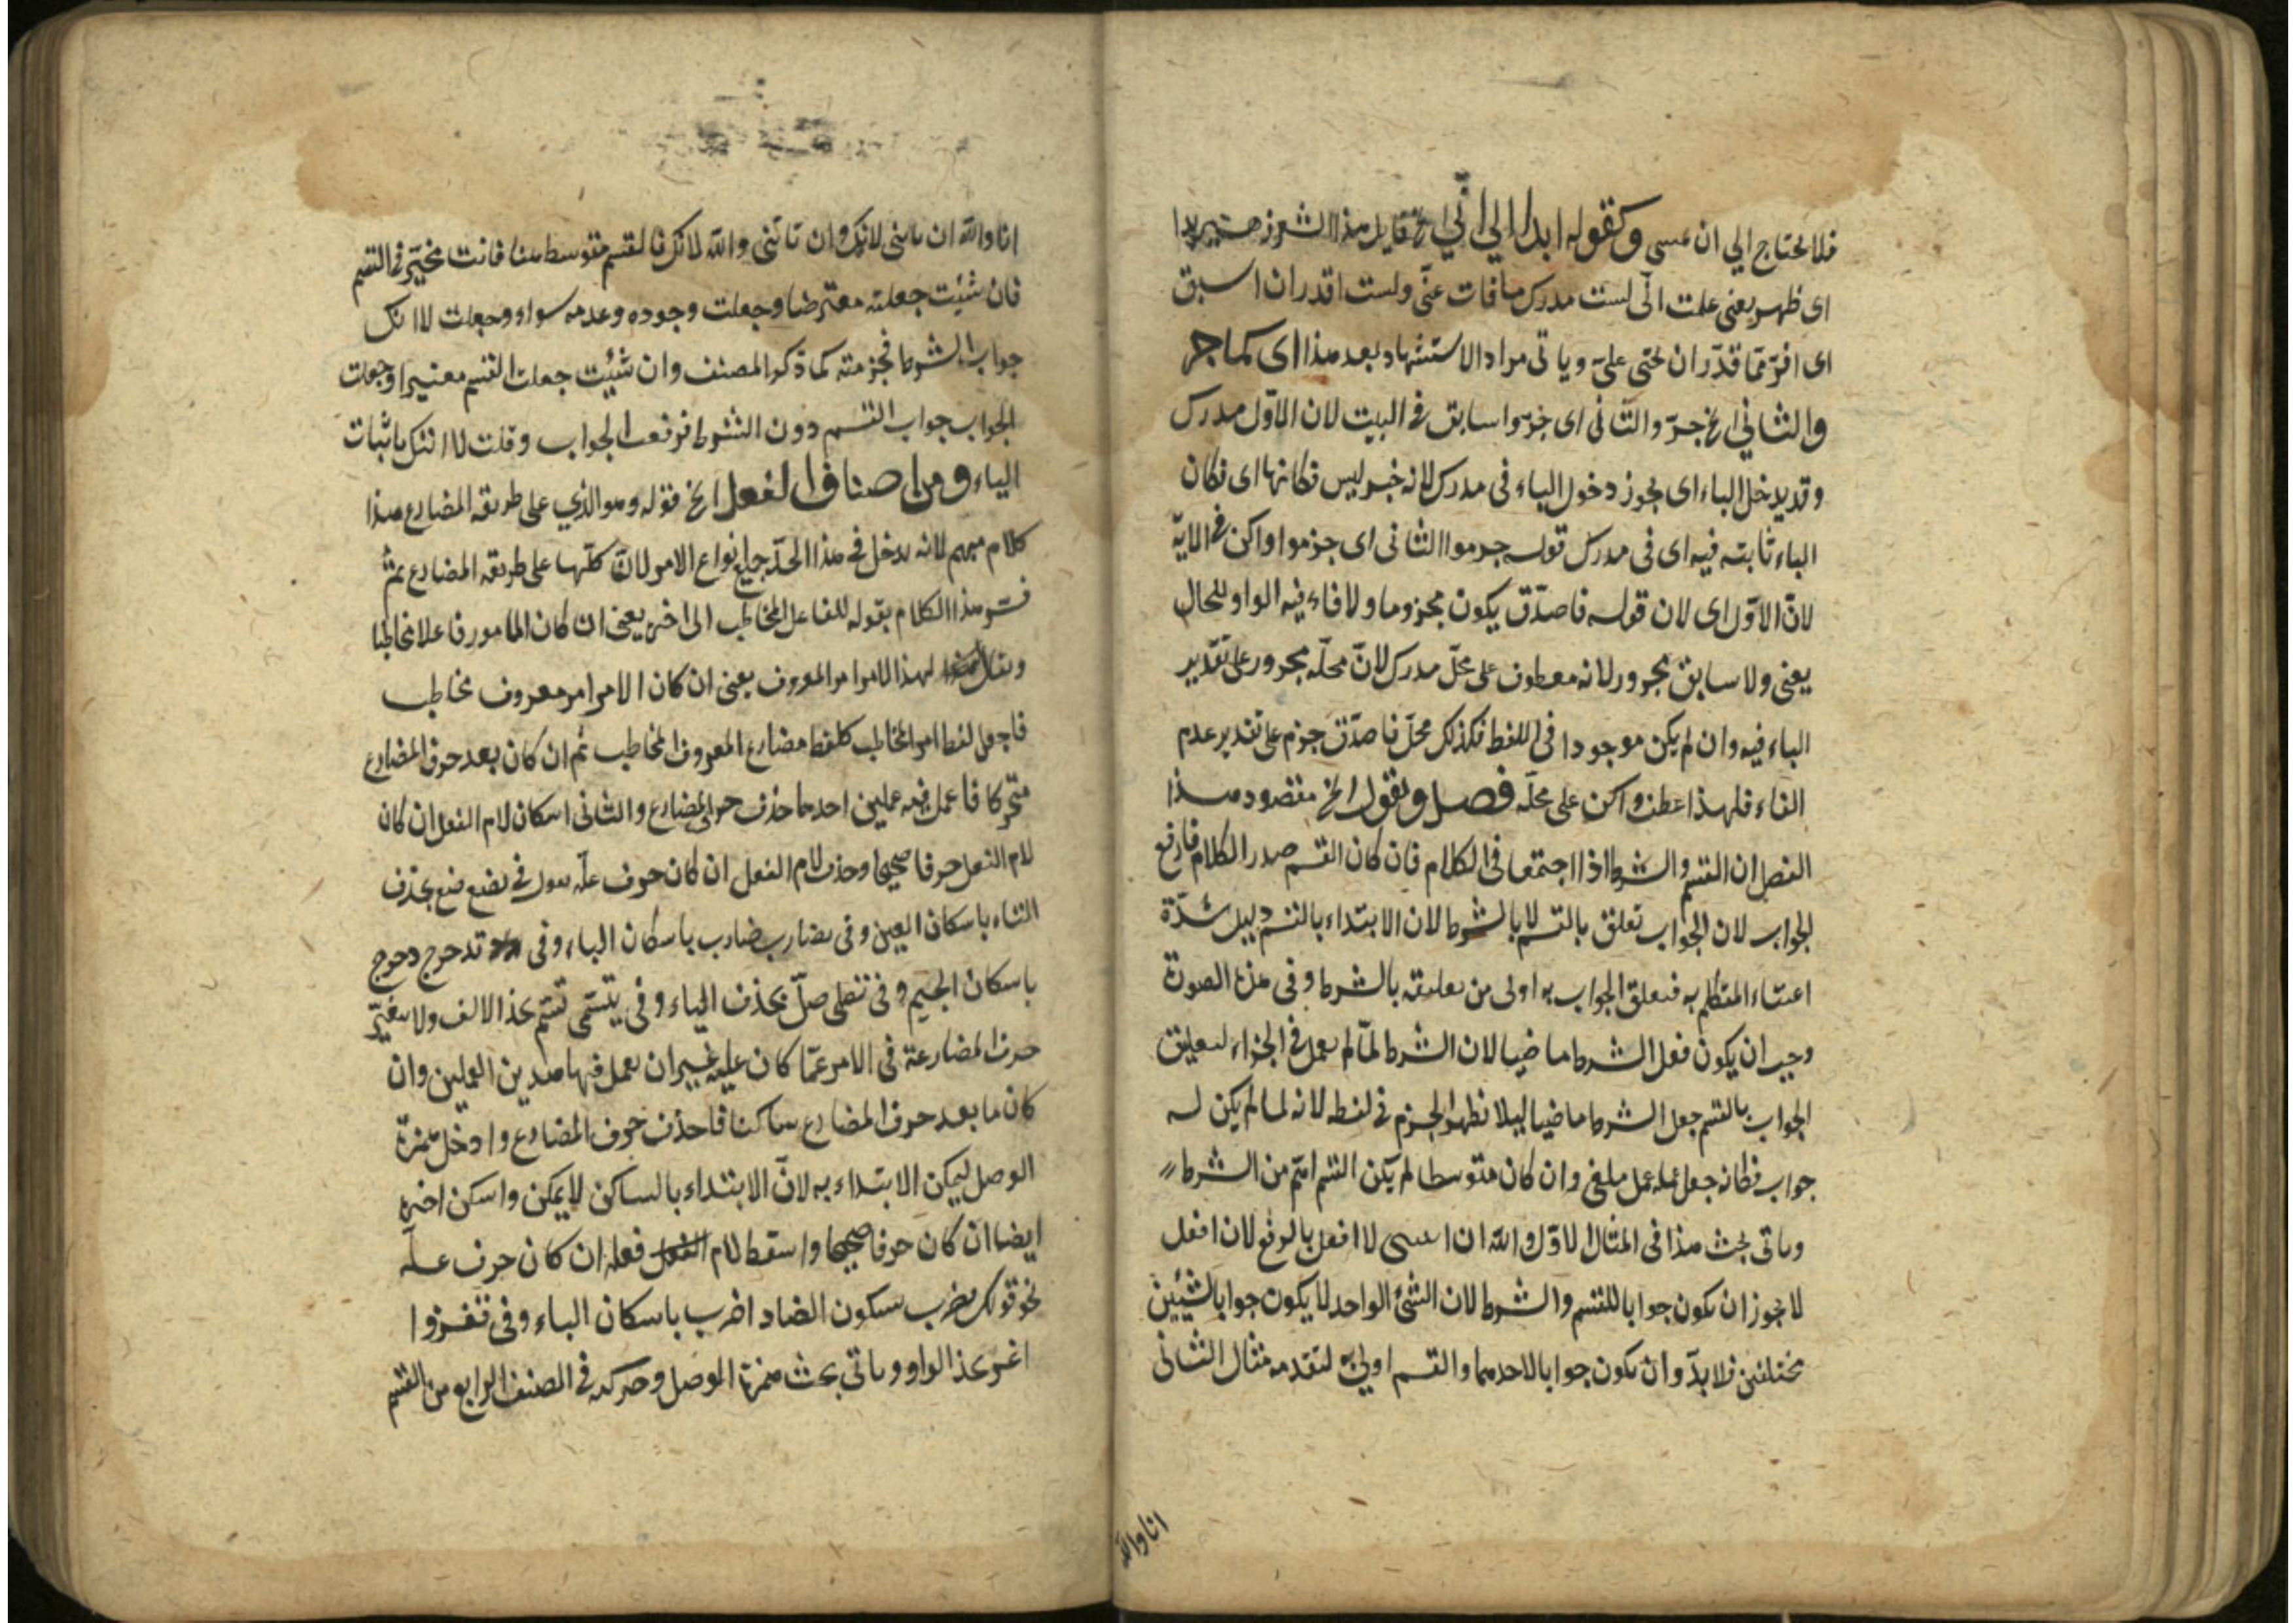 فلا يحتاج الي ان عسى وكقوله ابدا لي اني الخ قايل هذا الشعر زهير بدا
اى ظهر يعنى علمت انى لست مدرك ما فات عنّى ولست اقدر ان اسبق
اى افرّ ممّا قدّر ان يجئ علىّ وياتى مراد الاستشهاد بعد هذا اى كما جر
والثاني الخ جرّ والثانى اى جرّوا سابق في البيت لان الاوّل مدرك
وقد يدخل الباء اى يجوز دخول الباء فى مدرك لانه خبر ليس فكانها اى فكان
الباء ثابتة فيه اى فى مدرك قوله جزموا الثانى اى جزموا واكن فى الاية
لانّ الاوّل اى لان قوله فاصدّق يكون مجزوما ولا فاء فيه الواو للحال
يعنى ولا سابق مجرور لانه معطوف على محلّ مدرك لانّ محلّه مجرور على تقدير
الباء فيه وان لم يكن موجودا فى اللفظ فكذلك محلّ فاصدّق جزم على تقدير عدم
الفاء فلهذا عطف واكن على محلّه فصل وتقول الخ مقصود هذا
الفصل ان القسم والشرط اذا اجتمعا فى الكلام فان كان القسم صدر الكلام فارفع
الجواب لان الجواب تعلق بالقسم لا بالشرط لان الابتداء بالقسم دليل شدّة
اعتناء المتكلم به فتعلق الجواب به اولى من تعليقه بالشرط وفى هذه الصورة
وجب ان يكون فعل الشرط ماضيا لان الشرط لمّا لم يعمل فى الجزاء لتعليق
الجواب بالقسم جعل الشرط ماضيا ليلا يظهر الجزم فى لفظه لانه لما لم يكن له
جواب فكانه جعل عمله عمل ملغى وان كان متوسطا لم يكن القسم اهّم من الشرط
وياتى بحث هذا فى المثال الاوّل والله ان اتيتنى لا افعل بالرفع لان افعل
لا يجوز ان يكون جوابا للقسم والشرط لان الشئ الواحد لا يكون جوابا لشيئين
مختلفين فلا بدّ وان يكون جوابا لاحدهما والقسم اولى به لتقدمه مثال الثانى
انا والله
انا والله ان تاتنى لا آتك وان تاتنى والله لا آتك فالقسم متوسط هنا فانت مخيّر فى القسم
فان شئت جعلته معترضا وجعلت وجوده وعدمه سواء وجعلت لا اتك
جواب الشرط فجزمته كما ذكر المصنف وان شئت جعلت القسم معتبرا وجعلت
الجواب جواب القسم دون الشرط فرفعت الجواب وقلت لا اتيك باثبات
الياء ومن اصناف الفعل الخ قوله وهو الذي على طريقة المضارع هذا
كلام مبهم لانه يدخل فى هذا الحدّ جميع انواع الامر لانّ كلّها على طريقة المضارع ثم
فسّر هذا الكلام بقوله للفاعل المخاطب الى اخره يعنى ان كان المامور فاعلا مخاطبا
لهذا الامر امر المعروف يعنى ان كان الامر امر معروف مخاطب
فاجعل لفظ امر المخاطب كلفظ مضارع المعروف المخاطب ثم ان كان بعد حرف المضارع
متحركا فاعمل فيه عملين احدهما حذف حرف المضارع والثانى اسكان لام الفعل ان كان
لام الفعل حرفا صحيحا وحذف لام الفعل ان كان حرف علّة تقول فى تضع ضع بحذف
التاء باسكان العين وفى تضارب ضارب باسكان الباء وفى تدحرج دحرج
باسكان الجيم وفى تصلى صلّ بحذف الياء وفى يتسمّى تسمّ بحذف الالف ولا يتغيّر
حرف المضارعة فى الامر عمّا كان عليه غير ان يعمل فيها هذين العملين وان
كان ما بعد حرف المضارع ساكنا فاحذف حرف المضارع وادخل همزة
الوصل ليمكن الابتداء به لانّ الابتداء بالساكن لا يمكن واسكن اخره
ايضا ان كان حرفا صحيحا واسقط لام فعله ان كان حرف علّة
نحو قولك تضرب بسكون الضاد اضرب باسكان الباء وفى تغزوا
اغز بحذف الواو وياتى بحث همزة الوصل وحركته فى الصنف الرابع من القسم